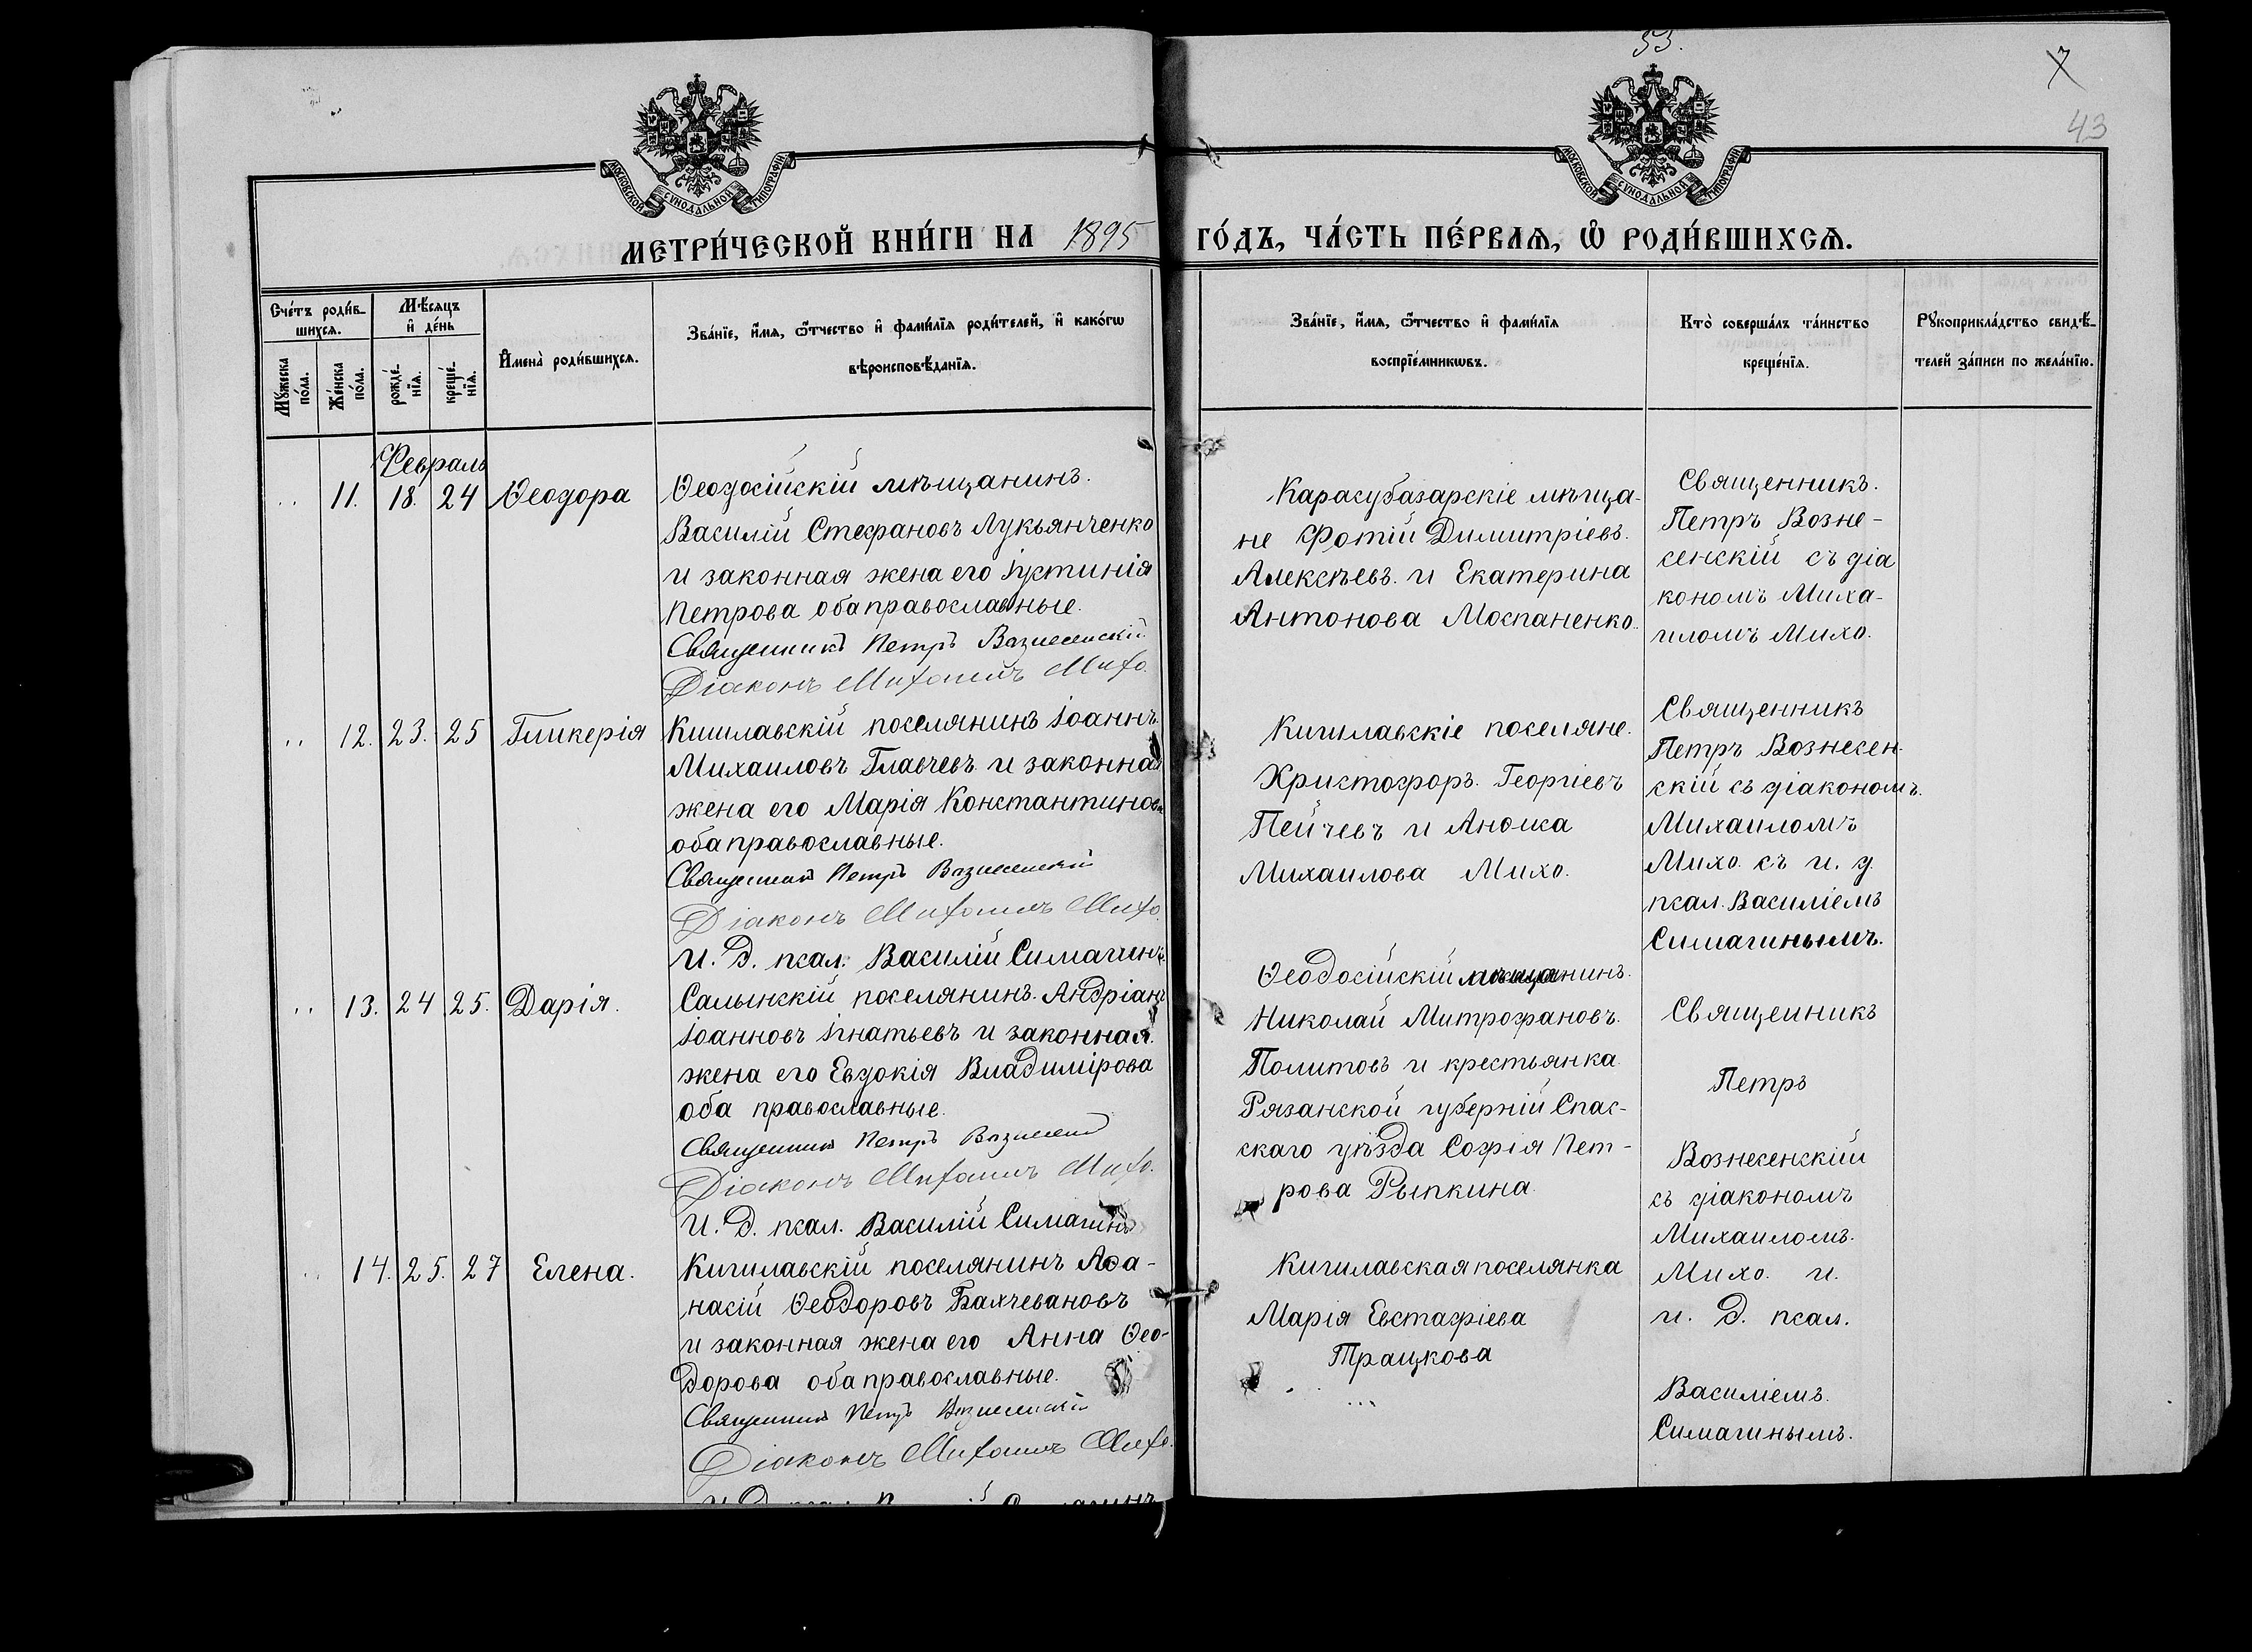 53.
7
43
МОСКОВСКОЙ СѴНОДАЛЬНОЙ ТИПОГРАФІИ
МОСКОВСКОЙ СѴНОДАЛЬНОЙ ТИПОГРАФІИ
МЕТРИ́ЧЕСКОЙ КНИ́ГИ НА 1895 ГО́ДЪ, ЧА́СТЬ ПЕ́РВАѦ, Ѡ҆ РОДИ́ВШИХСѦ.
Сче́тъ роди́в-
шихся.
Мꙋ́жеска
по́ла.
Же́нска
по́ла.
Мѣ́сяцъ
и҆ де́нь
рожде́-
нїя.
креще́-
нїя.
И҆мена̀ роди́вшихся.
Зва́нїе, и҆́мя, ѻ҆́тчество и҆ фами́лїя роди́телей, и҆ како́гѡ
вѣроисповѣ́данїя.
Зва́нїе, и҆́мя, ѻ҆́тчество и҆ фами́лїя
воспрїе́мникѡвъ.
Кто̀ соверша́лъ та́инство
креще́нїя.
Рꙋкоприкла́дство свидѣ́-
телей за́писи по жела́нїю.
Февраль
11. 18. 24 Ѳеодора
Ѳеодосійскій мѣщанинъ.
Василій Стефановъ Лукьянченко
и законная жена его Іустинія
Петрова оба православные.
Священникъ Петръ Вознесенскій
Діаконъ Михаилъ Михо.
Карасубазарскіе мѣща-
не Фотій Димитріевъ.
Алексѣевъ. и Екатерина
Антонова Моспаненко.
Священникъ.
Петръ Возне-
сенскій съ діа
кономъ Миха-
иломъ Михо.
12. 23. 25 Гликерія
Кишлавскій поселянинъ Іоаннъ
Михаиловъ Главчевъ и законная
жена его Марія Константинова
оба православные.
Священникъ Петръ Вознесенскій
Діаконъ Михаилъ Михо.
И. Д. псал. Василій Симагинъ.
Кишлавскіе поселяне.
Христофоръ. Георгіевъ
Пейчевъ и Аношка
Михаилова Михо.
Священникъ
Петръ Вознесен-
скій съ діакономъ.
Михаиломъ
Михо. съ и. д.
псал. Василіемъ
Симагинымъ.
13. 24 25. Дарія.
Салынскій поселянинъ. Андріанъ
Іоанновъ Игнатьевъ и законная.
жена его Евдокія Владимірова
оба православные.
Священникъ Петръ Вознесенскій
Діаконъ Михаилъ Михо.
И. Д. псал. Василій Симагинъ
Ѳеодосійскій мѣщанинъ.
Николай Митрофановъ.
Политовъ и крестьянка
Рязанской губерніи Спас-
скаго уѣзда Софія Пет-
рова Рыпкина.
Священникъ
Петръ
Вознесенскій
съ діакономъ
Михаиломъ.
Михо. и.
и. Д. псал.
Василіемъ.
Симагинымъ.
14. 25. 27 Елена.
Кишлавскій поселянинъ Аѳа-
насій Ѳеодоровъ Бахчевановъ
и законная жена его Анна Ѳео-
дорова оба православные.
Священникъ Петръ Вознесенскій
Діаконъ Михаилъ Михо.
Кишлавская поселянка
Марія Евстафіева
Трацкова